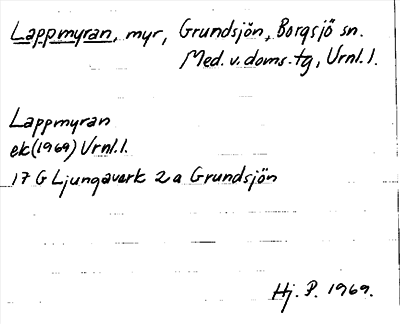 Lappmyran, myr, Grundsjön, Borgsjö sn.
Med. v. doms. tg, Vrnl. l.
Lappmyran
ek (1969) Vrnl. l.
17 G Ljungaverk 2a Grundsjön
Hj. P. 1969.